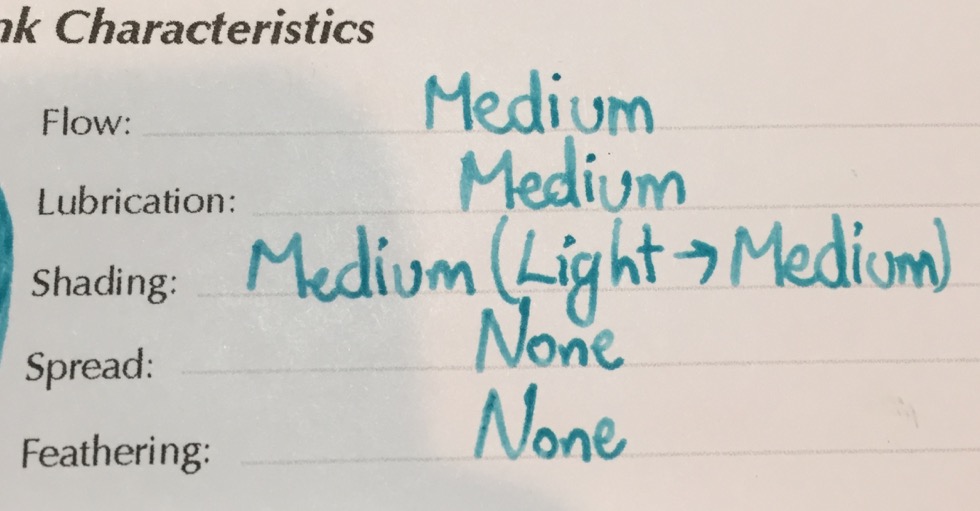 nk Characteristics
Flow: Medium
Lubrication: Medium
Shading: Medium (Light → Medium)
Spread: None
Feathering: None